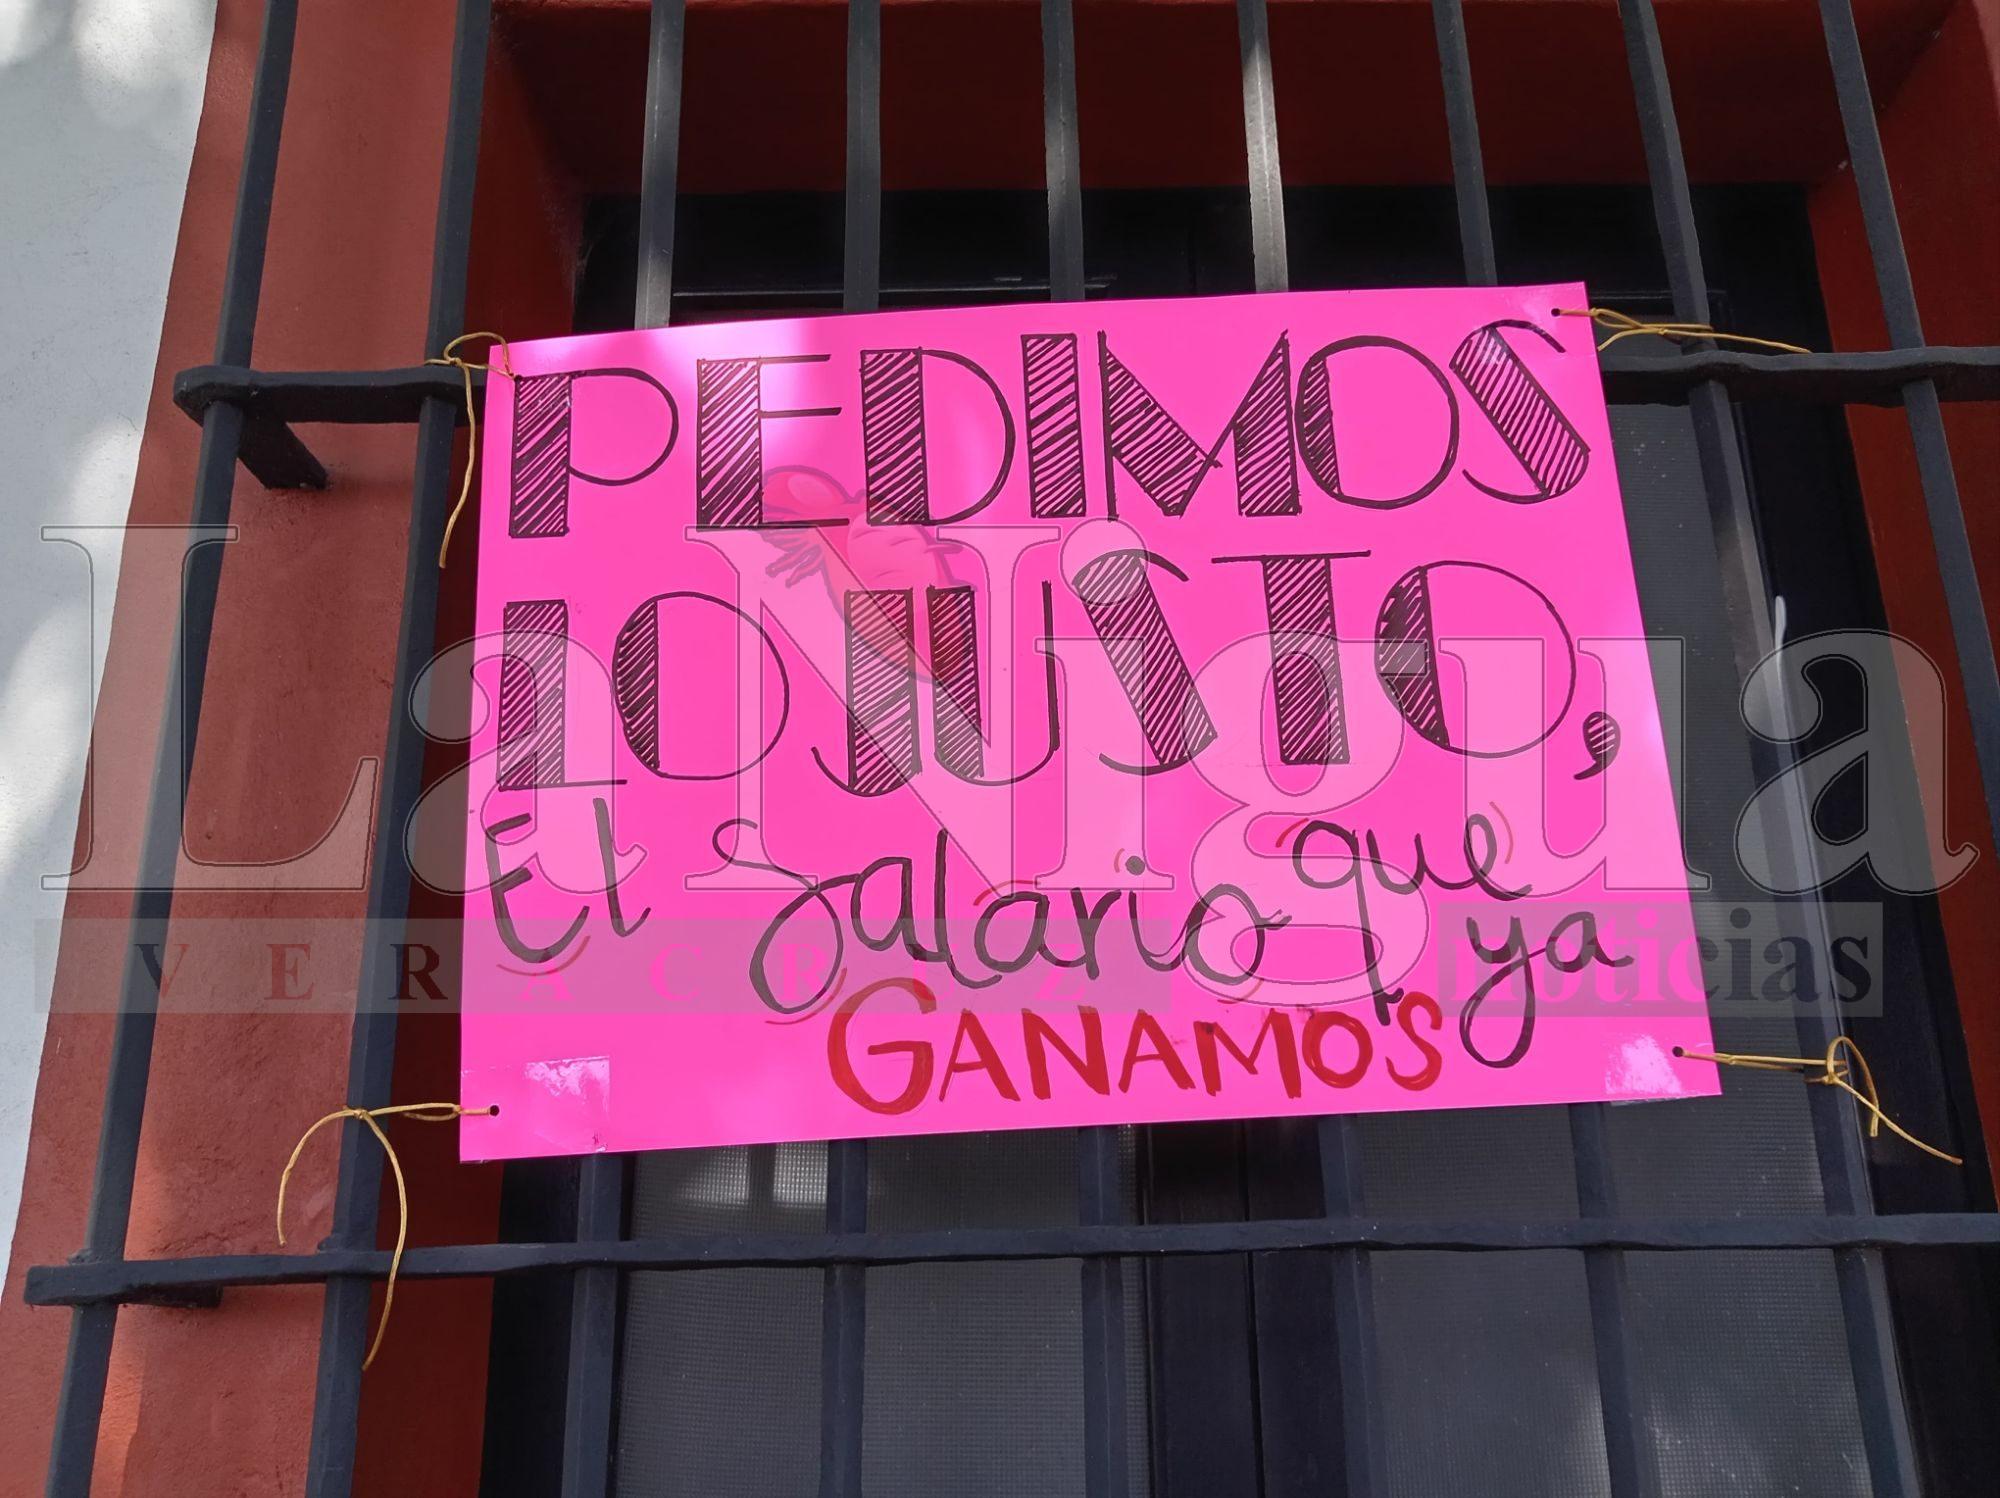 PEDIMOS
LO JUSTO,
El salario que ya
GANAMOS
La Nigua
VERACRUZ noticias